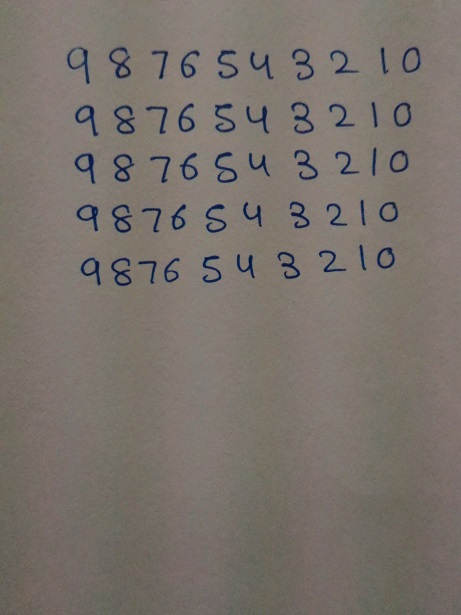 9 8 7 6 5 4 3 2 1 0
9 8 7 6 5 4 3 2 1 0
9 8 7 6 5 4 3 2 1 0
9 8 7 6 5 4 3 2 1 0
9 8 7 6 5 4 3 2 1 0